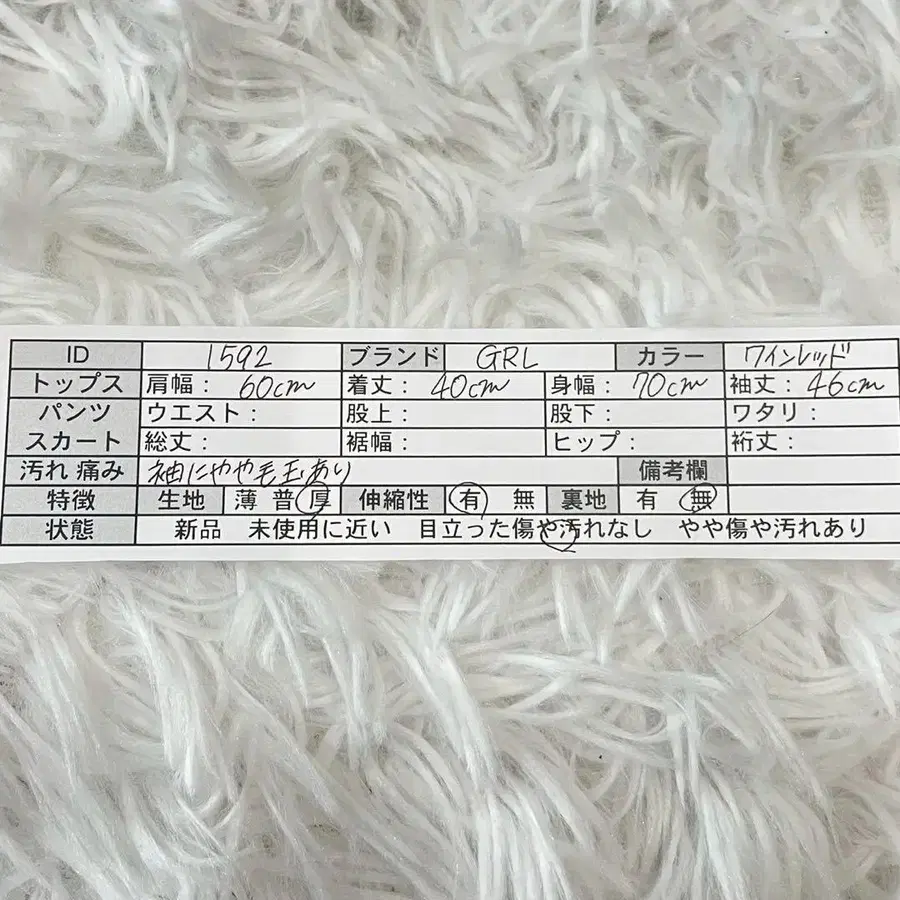 ID 1592 ブランド GRL カラー ワインレッド
トップス 肩幅： 60cm 着丈： 40cm 身幅： 70cm 袖丈： 46cm
パンツ ウエスト： 股上： 股下： ワタリ：
スカート 総丈： 裾幅： ヒップ： 裄丈：
汚れ 痛み 袖にやや毛玉あり 備考欄
特徴 生地 薄 普 厚 伸縮性 有 無 裏地 有 無
状態 新品 未使用に近い 目立った傷や汚れなし やや傷や汚れあり